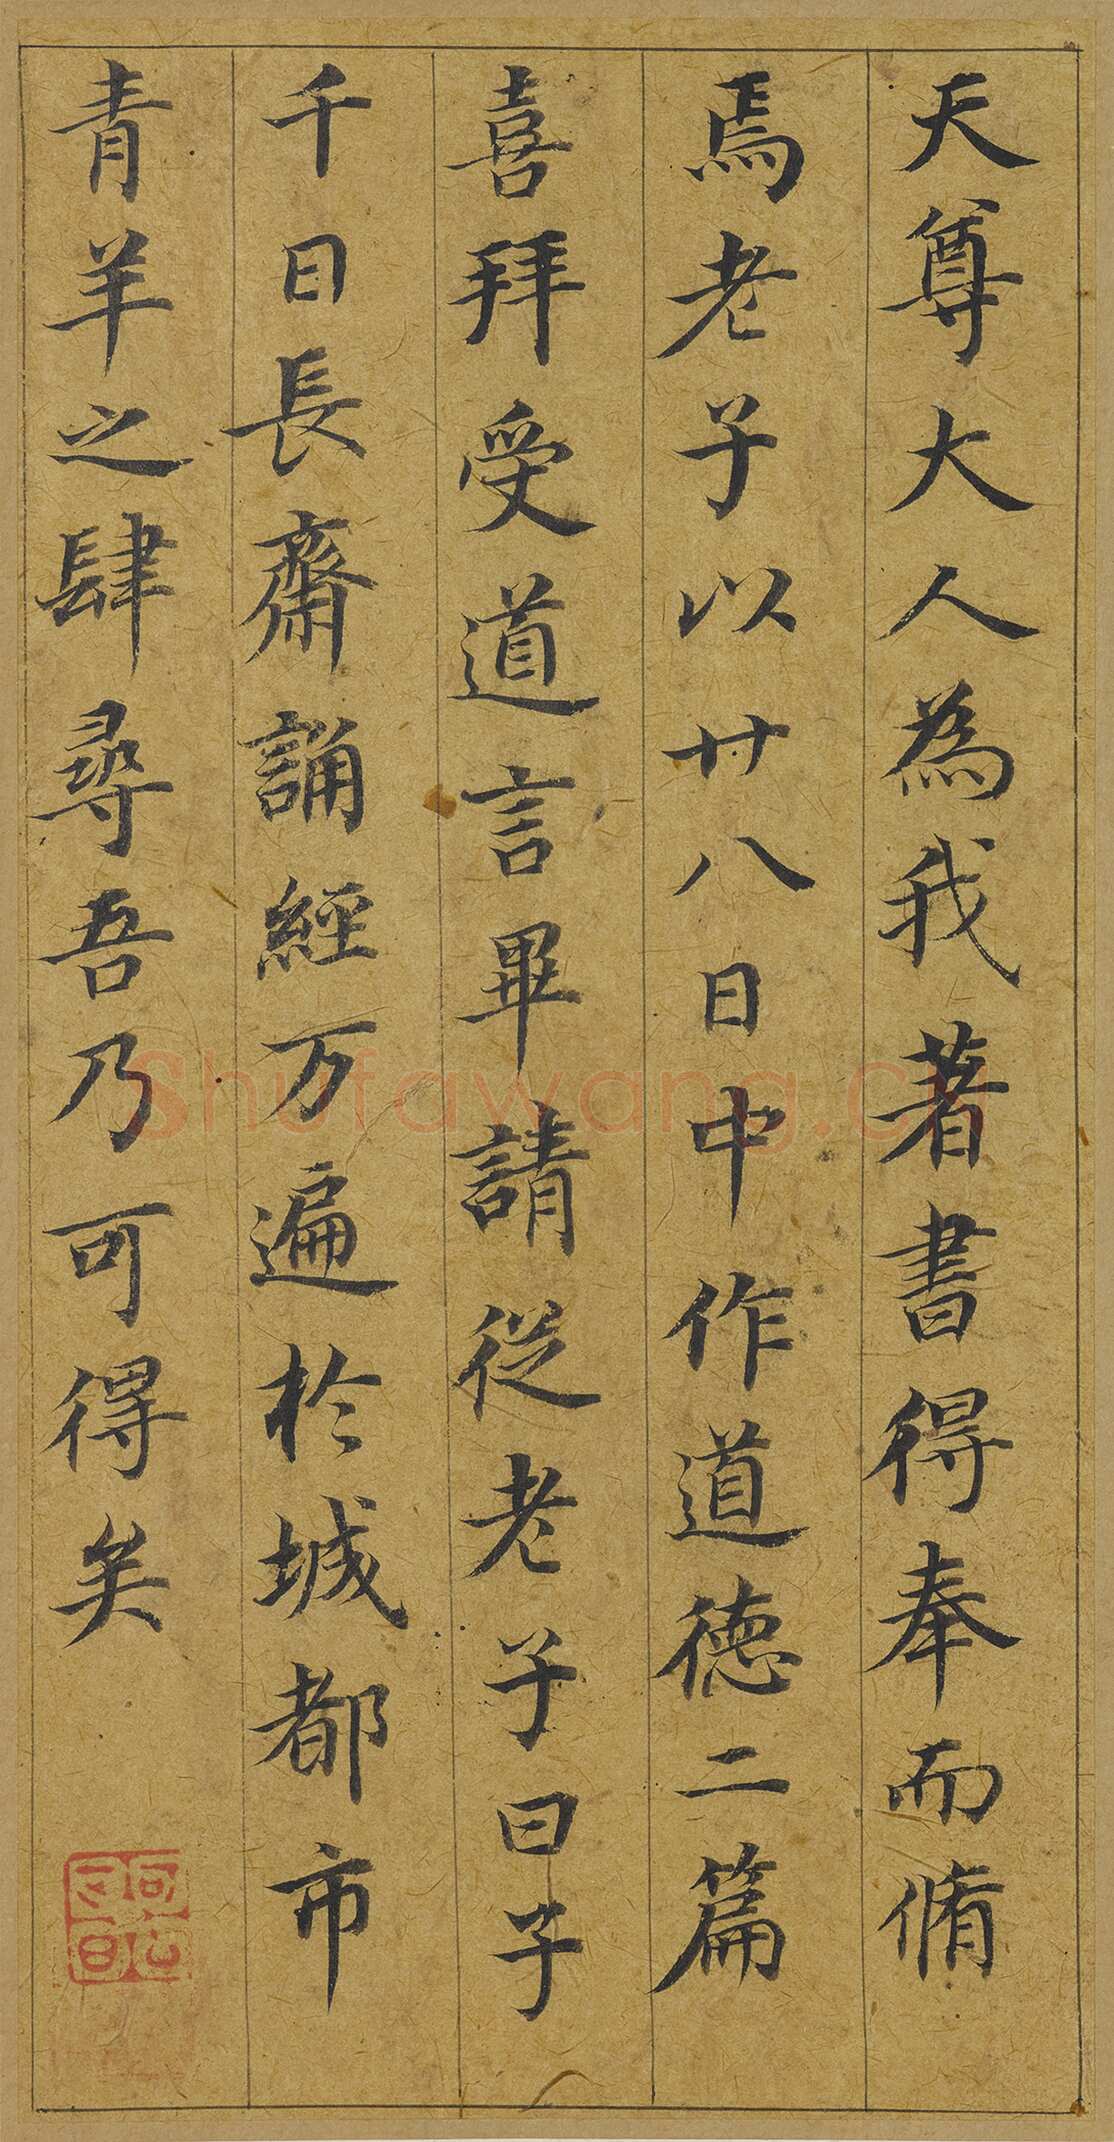 天尊大人為我著書得奉而脩
焉老子以廿八日中作道德二篇
喜拜受道言畢請從老子曰子
千日長齋誦經万遍於城都市
青羊之肆尋吾乃可得矣
Shufawang.c